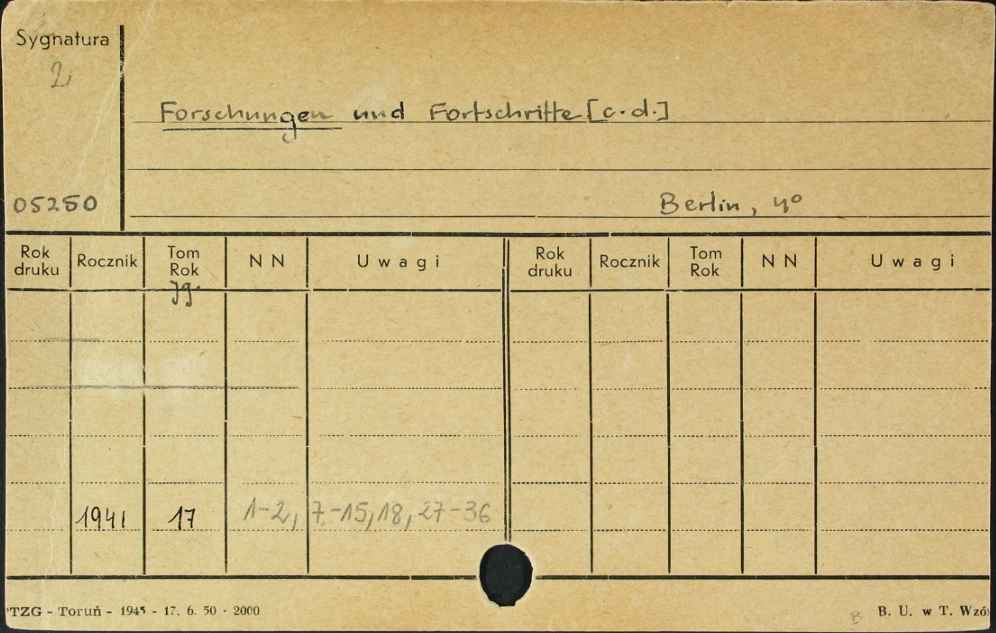 Sygnatura
2
Forschungen und Fortschritte [c.d.]
05250
Berlin, 4°
Rok druku Rocznik Tom Rok NN Uwagi Rok druku Rocznik Tom Rok NN Uwagi
Jg.
1941 17 1-2, 7-15, 18, 27-36
TZG - Toruń - 1945 - 17. 6. 50 - 2000
B. U. w T. Wzó